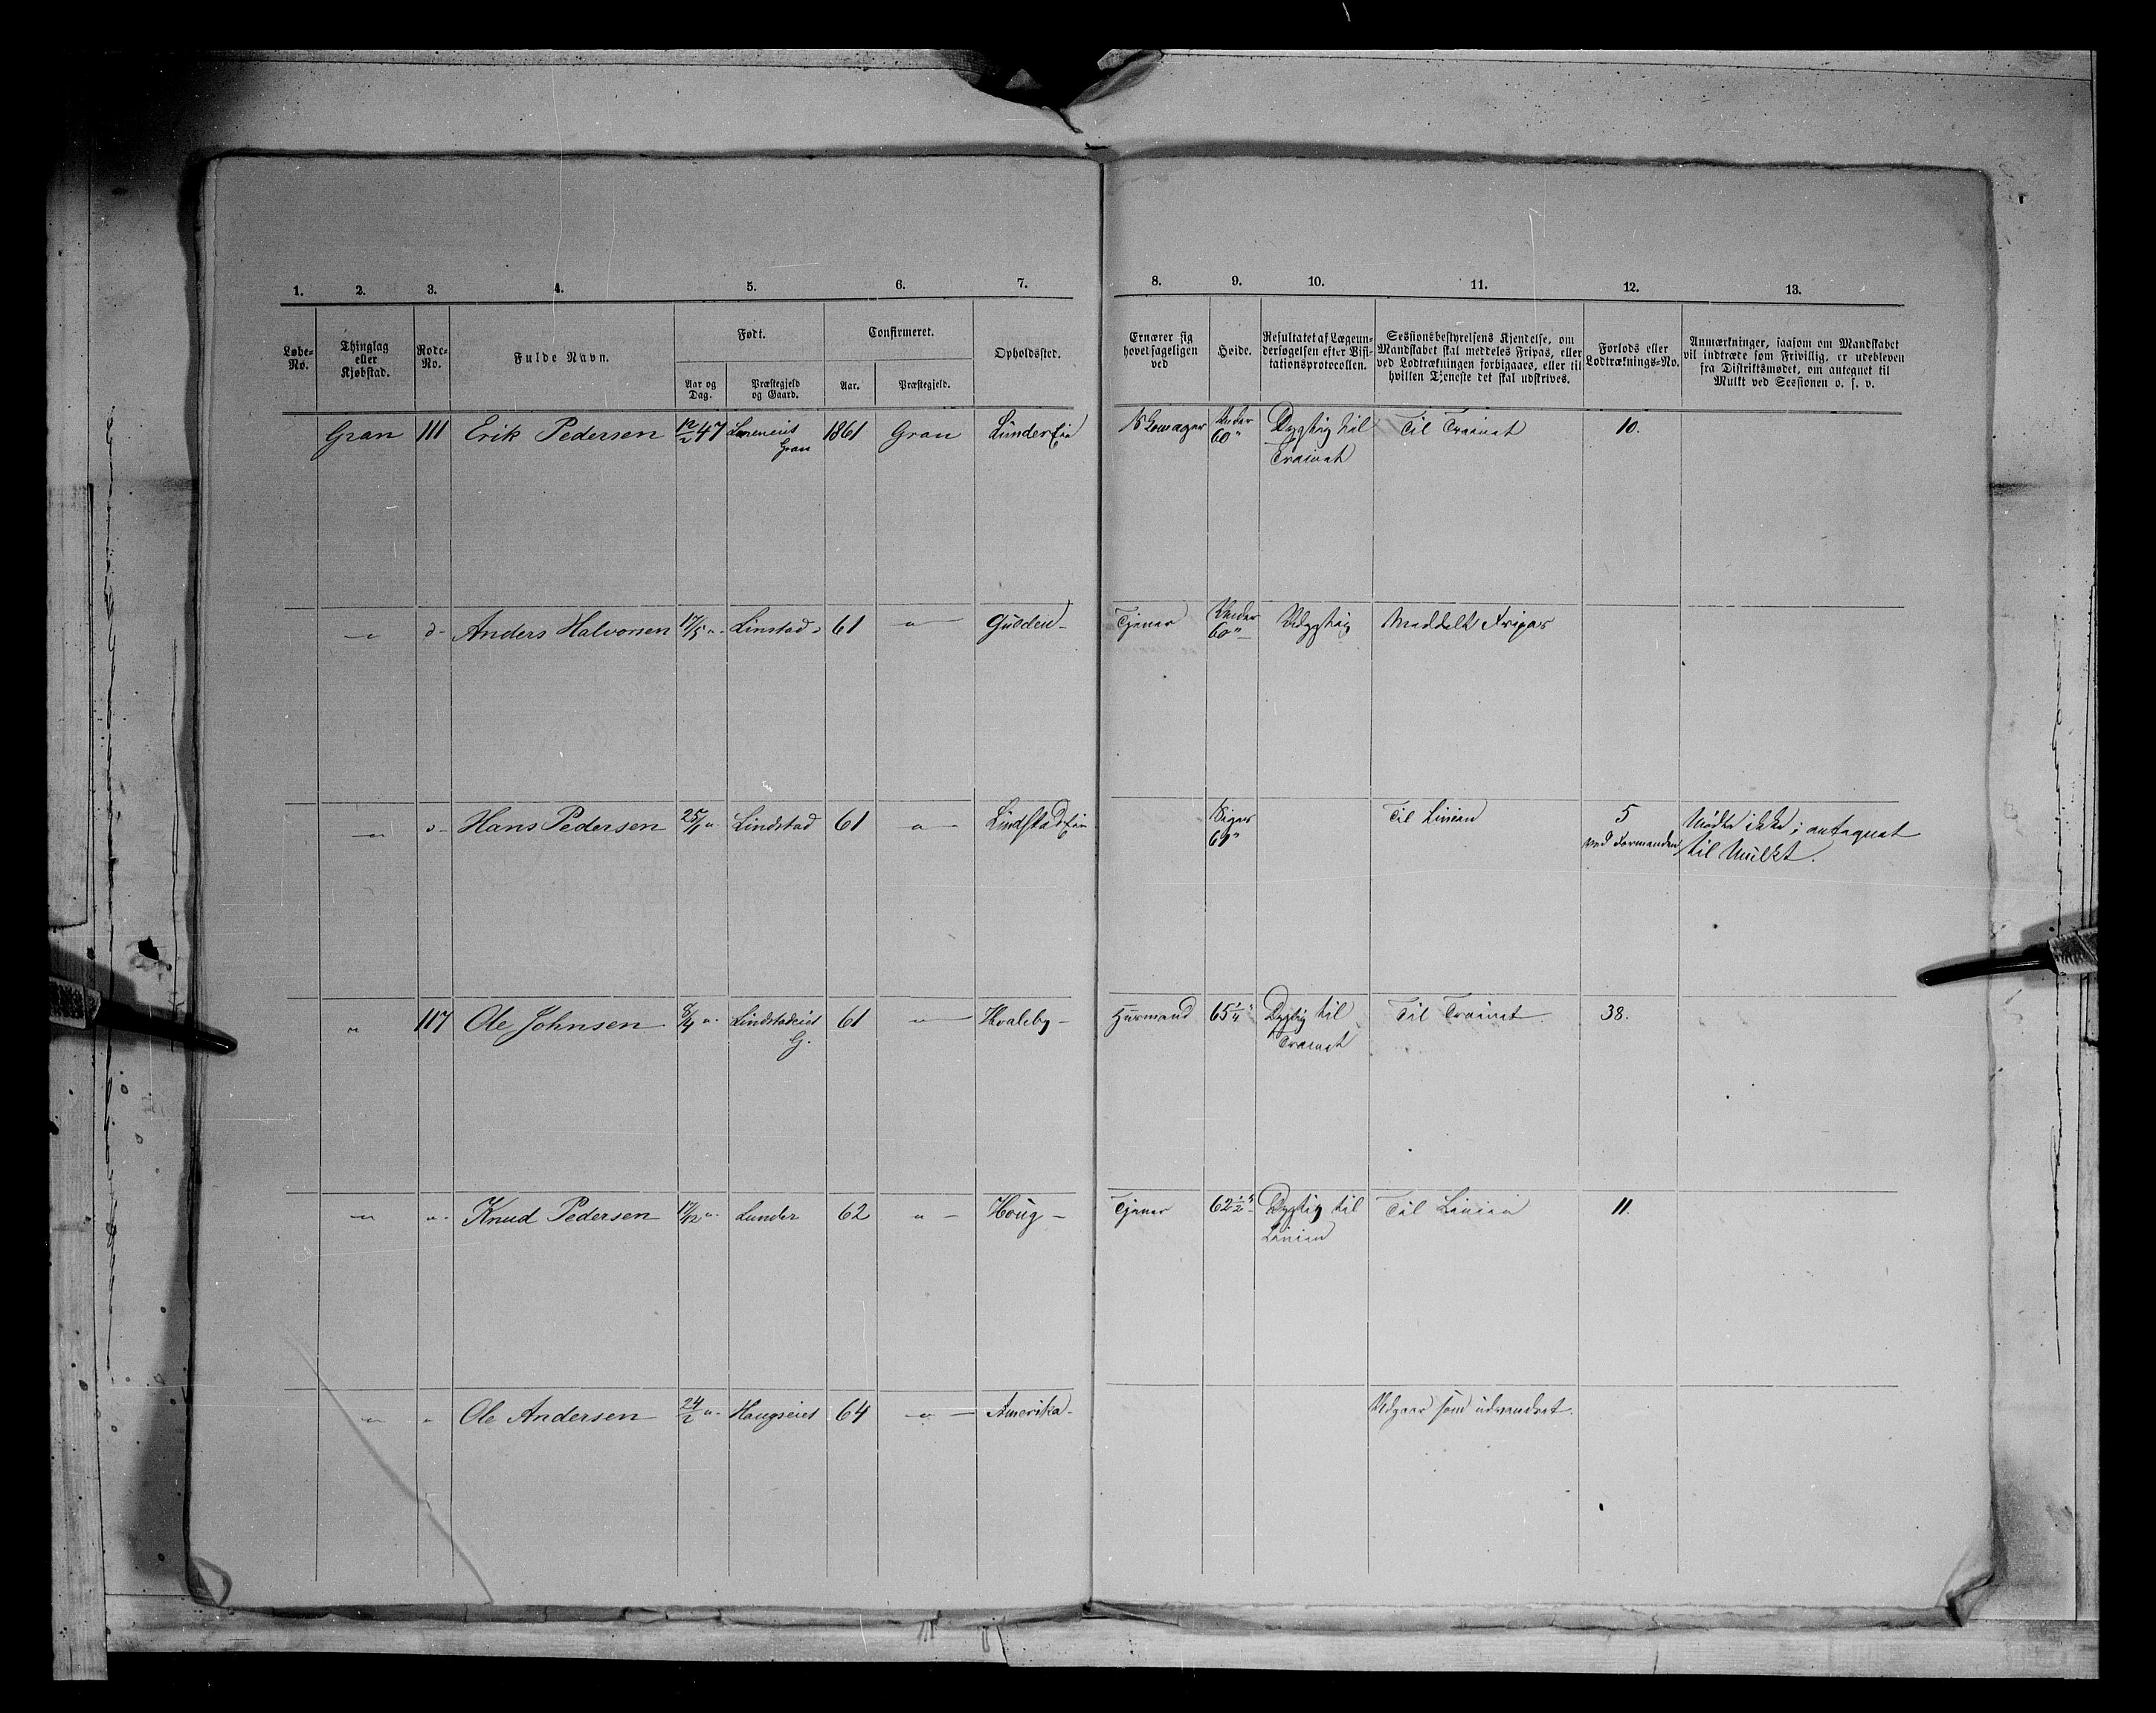 1. 2. 3. 4. 5. 6. 7. 8. 9. 10. 11. 12. 13.
Løbe-No.
Thinglag eller Kjøbstad.
Rode-No.
Fulde Navn.
Født.
Aar og Dag.
Præstegjeld og Gaard.
Confirmeret.
Aar.
Præstegjeld.
Opholdssted.
Ernærer sig hovedsageligen ved
Høide.
Resultatet af Lægeundersøgelsen efter Visitationsprotocollen.
Sessionsbestyrelsens Kjendelse, om Mandskabet skal meddeles Fripas, eller ved Lodtrækningen forbigaaes, eller til hvilken Tjeneste det skal udskrives.
Forlods eller Lodtræknings-No.
Anmærkninger, saasom om Mandskabet vil indtræde som Frivillig, er udebleven fra Distriktsmødet, om antegnet til Mulkt ved Sessionen o. s. v.
Gran 111 Erik Pedersen 12/2 47 Gran 1861 Gran Skomager Under 60" Dygtig til Trainet Til Trainet 10.
— d- Anders Halvorsen 17/5 " Linstad 61 — " — Tjener Under 60" Udygtig Meddelt Fripas
— " — d- Hans Pedersen 25/1 " Lindstad 61 — " — Siger 69" Til Linien 5 ved Formanden Mødte ikke; antegnet til Mulkt.
" 117 Ole Johnsen 8/4 " Lindstadeiet G. 61 — " — Hvaleby - Husmand 65 1/4" Dygtig til Trainet Til Trainet 38.
— " — " - Knud Pedersen 17/12 " Lunder 62 " — Houg - Tjener 62 1/2" Dygtig til Linien Til Linien 11.
— " — " Ole Andersen 24/2 " Haugseiet 64 — " — Amerika - Udgaar som udvandret.